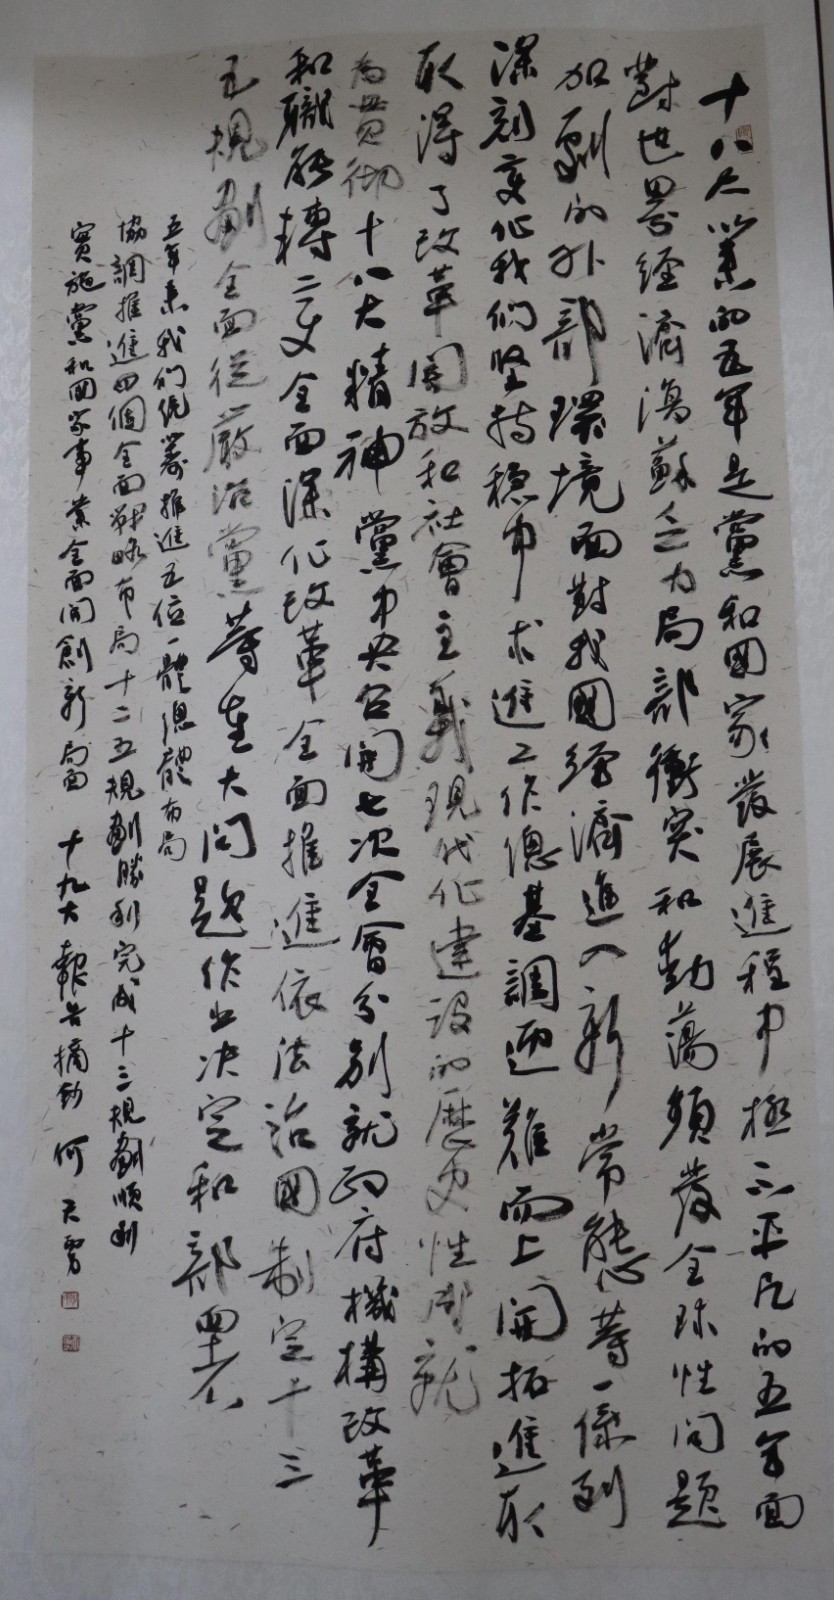 十八大以來的五年是黨和國家發展進程中極不平凡的五年面
對世界經濟復蘇乏力局部衝突和動蕩頻發全球性问題
加劇的外部環境面對我國經濟進入新常態等一係列
深刻变化我们坚持稳中求進工作總基調迎難而上開拓進取
取得了改革開放和社會主義現代化建设的歷史性成就
為貫彻十八大精神黨中央召開七次全會分别就政府機構改革
和職能轉变全面深化改革全面推進依法治國制定十三
五規劃全面從嚴治黨等重大问题作出决定和部署
五年來我们统籌推進五位一體總體布局
協調推進四個全面戰略布局十二五規劃勝利完成十三五規劃順利
實施黨和國家事業全面開創新局面 十九大報告摘鈔 何